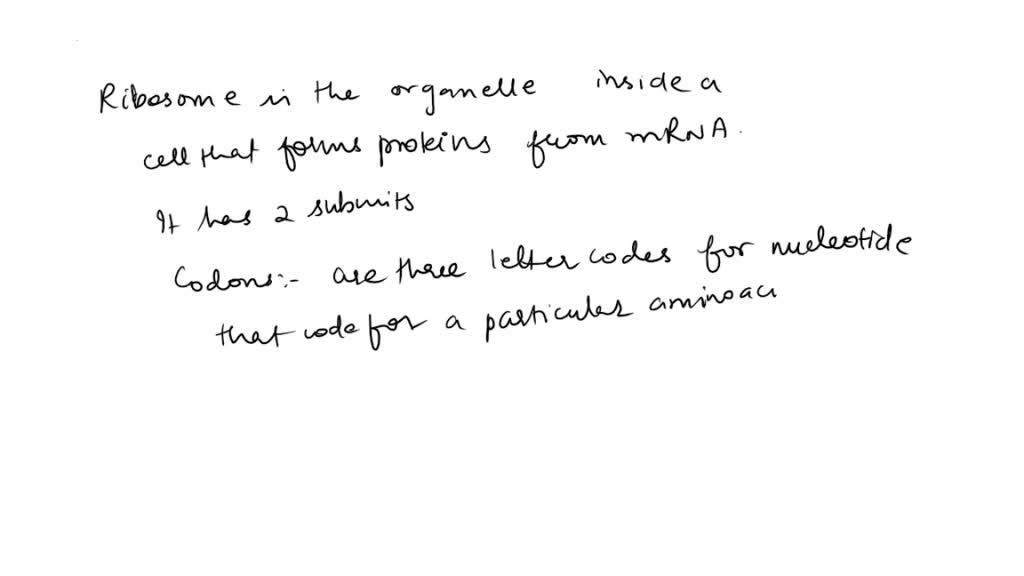 Ribosome is the organelle inside a
cell that forms proteins from mRNA.
It has 2 subunits
Codons:- are three letter codes for nucleotide
that code for a particular aminoac